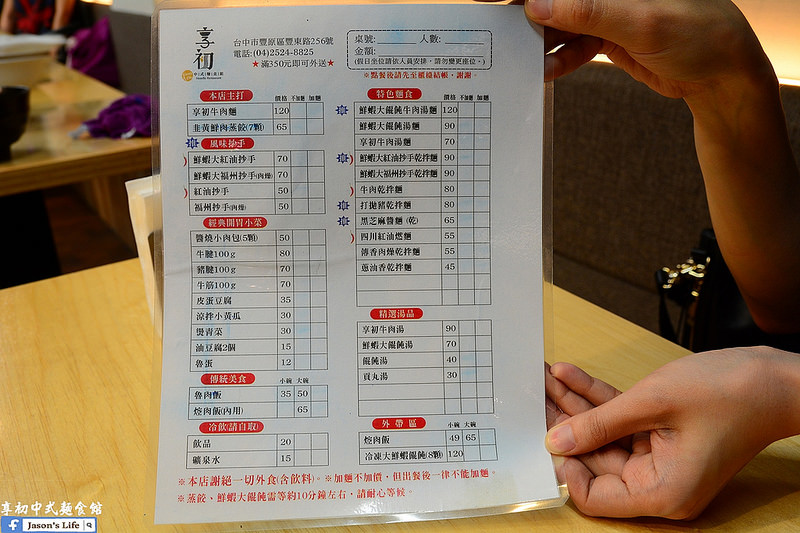 享初
台中市豐原區豐東路256號
電話:(04)2524-8825
★滿350元即可外送★
桌號: 人數:
金額:
(假日坐位請依人員安排，請勿變更座位。)
※點餐後請先至櫃檯結帳，謝謝。
本店主打 價格 不加麵 加麵
享初牛肉麵 120
韭黃鮮肉蒸餃(7顆) 65
風味抄手
鮮蝦大紅油抄手 70
鮮蝦大福州抄手(肉燥) 70
紅油抄手 50
福州抄手(肉燥) 50
經典開胃小菜
醬燒小肉包(5顆) 50
牛腱100g 80
豬腱100g 70
牛筋100g 70
皮蛋豆腐 35
涼拌小黃瓜 30
燙青菜 30
油豆腐2個 15
魯蛋 12
傳統美食 小碗 大碗
魯肉飯 35 50
焢肉飯(內用) 65
冷飲(請自取)
飲品 20
礦泉水 15
特色麵食 價格 不加麵 加麵
鮮蝦大餛飩牛肉湯麵 120
鮮蝦大餛飩湯麵 90
享初牛肉湯麵 70
鮮蝦大紅油抄手乾拌麵 90
鮮蝦大福州抄手乾拌麵 90
牛肉乾拌麵 80
打拋豬乾拌麵 80
黑芝麻醬麵 (乾) 65
四川紅油燃麵 55
傳香肉燥乾拌麵 55
蔥油香乾拌麵 45
精選湯品
享初牛肉湯 90
鮮蝦大餛飩湯 70
餛飩湯 40
貢丸湯 30
外帶區 小碗 大碗
焢肉飯 49 65
冷凍大鮮蝦餛飩(8顆) 120
※本店謝絕一切外食(含飲料)。※加麵不加價，但出餐後一律不能加麵。
※蒸餃、鮮蝦大餛飩需等約10分鐘左右，請耐心等候。
享初中式麵食館
Jason's Life